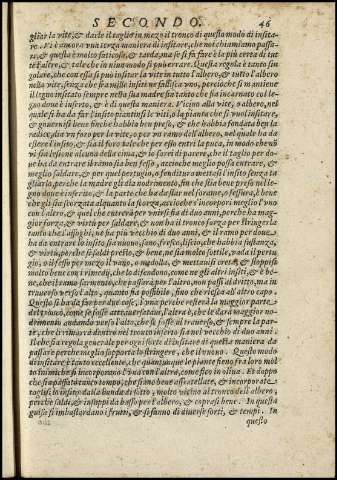 SECONDO. 46
gliar la vite, & darle il taglio in mezo il tronco di questo modo di insita-
re. Vi è ancora vna terza maniera di insitare, che noi chiamiamo passa-
re, & questa è molto faticosa, & tarda, ma se si fa fare è la più certa di tut
te l'altre, & tale che in niun modo si può errare. Questa regola è tanto sin
golare, che con essa si può insitar la vite in tutto l'albero, & tutto l'albero
nella vite, senza che fra mille insiti ne fallisca vno, percioche si mantiene
il legno insitato sempre nella sua madre fin tanto che sia incarnato col le-
gno doue è inserto, & è di questa maniera. Vicino alla vite, o albero, nel
quale si ha da far l'insito piantisi la vite, o la pianta che si vuol insitare,
& gouernisi bene finche habbia ben preso, & che habbia fondata ben la
radice, sia vn foro per la vite, o per vn ramo dell'albero, nel quale ha da
essere l'insito, & sia il foro tale che per esso entri la puca, in modo che nō
vi sia lesione alcuna della cima, & io sarei di parere, che il taglio per do-
ue ha da entrare il ramo sia ben fesso, accioche meglio possa entrare, &
meglio saldare, & per quel pertugio, o fenditura mettasi l'insito senza ta
gliarlo, perche la madre gli dia nodrimento, fin che stia bene preso nel le-
gno doue è inserito, & la parte che ha da star nel forame, o fessura, basta
che gli sia scorzata alquanto la scorza, accioche s'incorpori meglio l'vno
con l'altro, & quel che entrerà per vnirsi sia di due anni, perche ha mag-
gior forza, & virtù per saldare, & non ha il tronco forza per stringerlo
tanto che l'affoghi, ne sia più vecchio di due anni, & il ramo per doue
ha da entrare lo insito sia nuouo, sano, fresco, liscio, che habbia sustanza,
& virtù, perche si saldi presto, & bene, ne sia molto sottile, vada il pertu
gio, o il fesso per mezo il vano, o medolla, & mettauisi creta, & stoppisi
molto bene con i rimedij, che lo difendono, come ne gli altri insiti, & è be-
ne, che il ramo, o sarmento, che passerà per l'altro, non passi al dritto, ma in
trauerso verso l'alto, quanto sia possibile, sino che riesca all'altro capo.
Questo si ha da fare per due cose, l'vna perche resterà la maggior parte
del tronco, come se fosse atto, uerso l'alto, l'altra è, che le darà maggior no-
drimento andando verso l'alto, che se fosse al trauerso, & sempre la par-
te, che si rimarrà dentro nel tronco inserto sia nel vecchio di due anni.
Il che sia regola generale per ogni sorte d'insitare di questa maniera da
passare perche meglio sopporta lo stringere, che il nouo. Questo modo
di insitare è tanto eccellente, che quantunque le piante sieno fra loro mol-
to nimiche si incorporano l'vna con l'altra, come fico in oliua. Et dopo
che sia passato tanto tempo, che siano bene assaldate, & incorporate
taglisi lo insito dalla banda di sotto, molto vicino al tronco dell'albero,
perche saldi, & ristuppisi da basso per l'albero, & coprasi bene. In questa
guisa si imbastardano i frutti, & si fanno di diuerse sorti, & tempi. In
questo